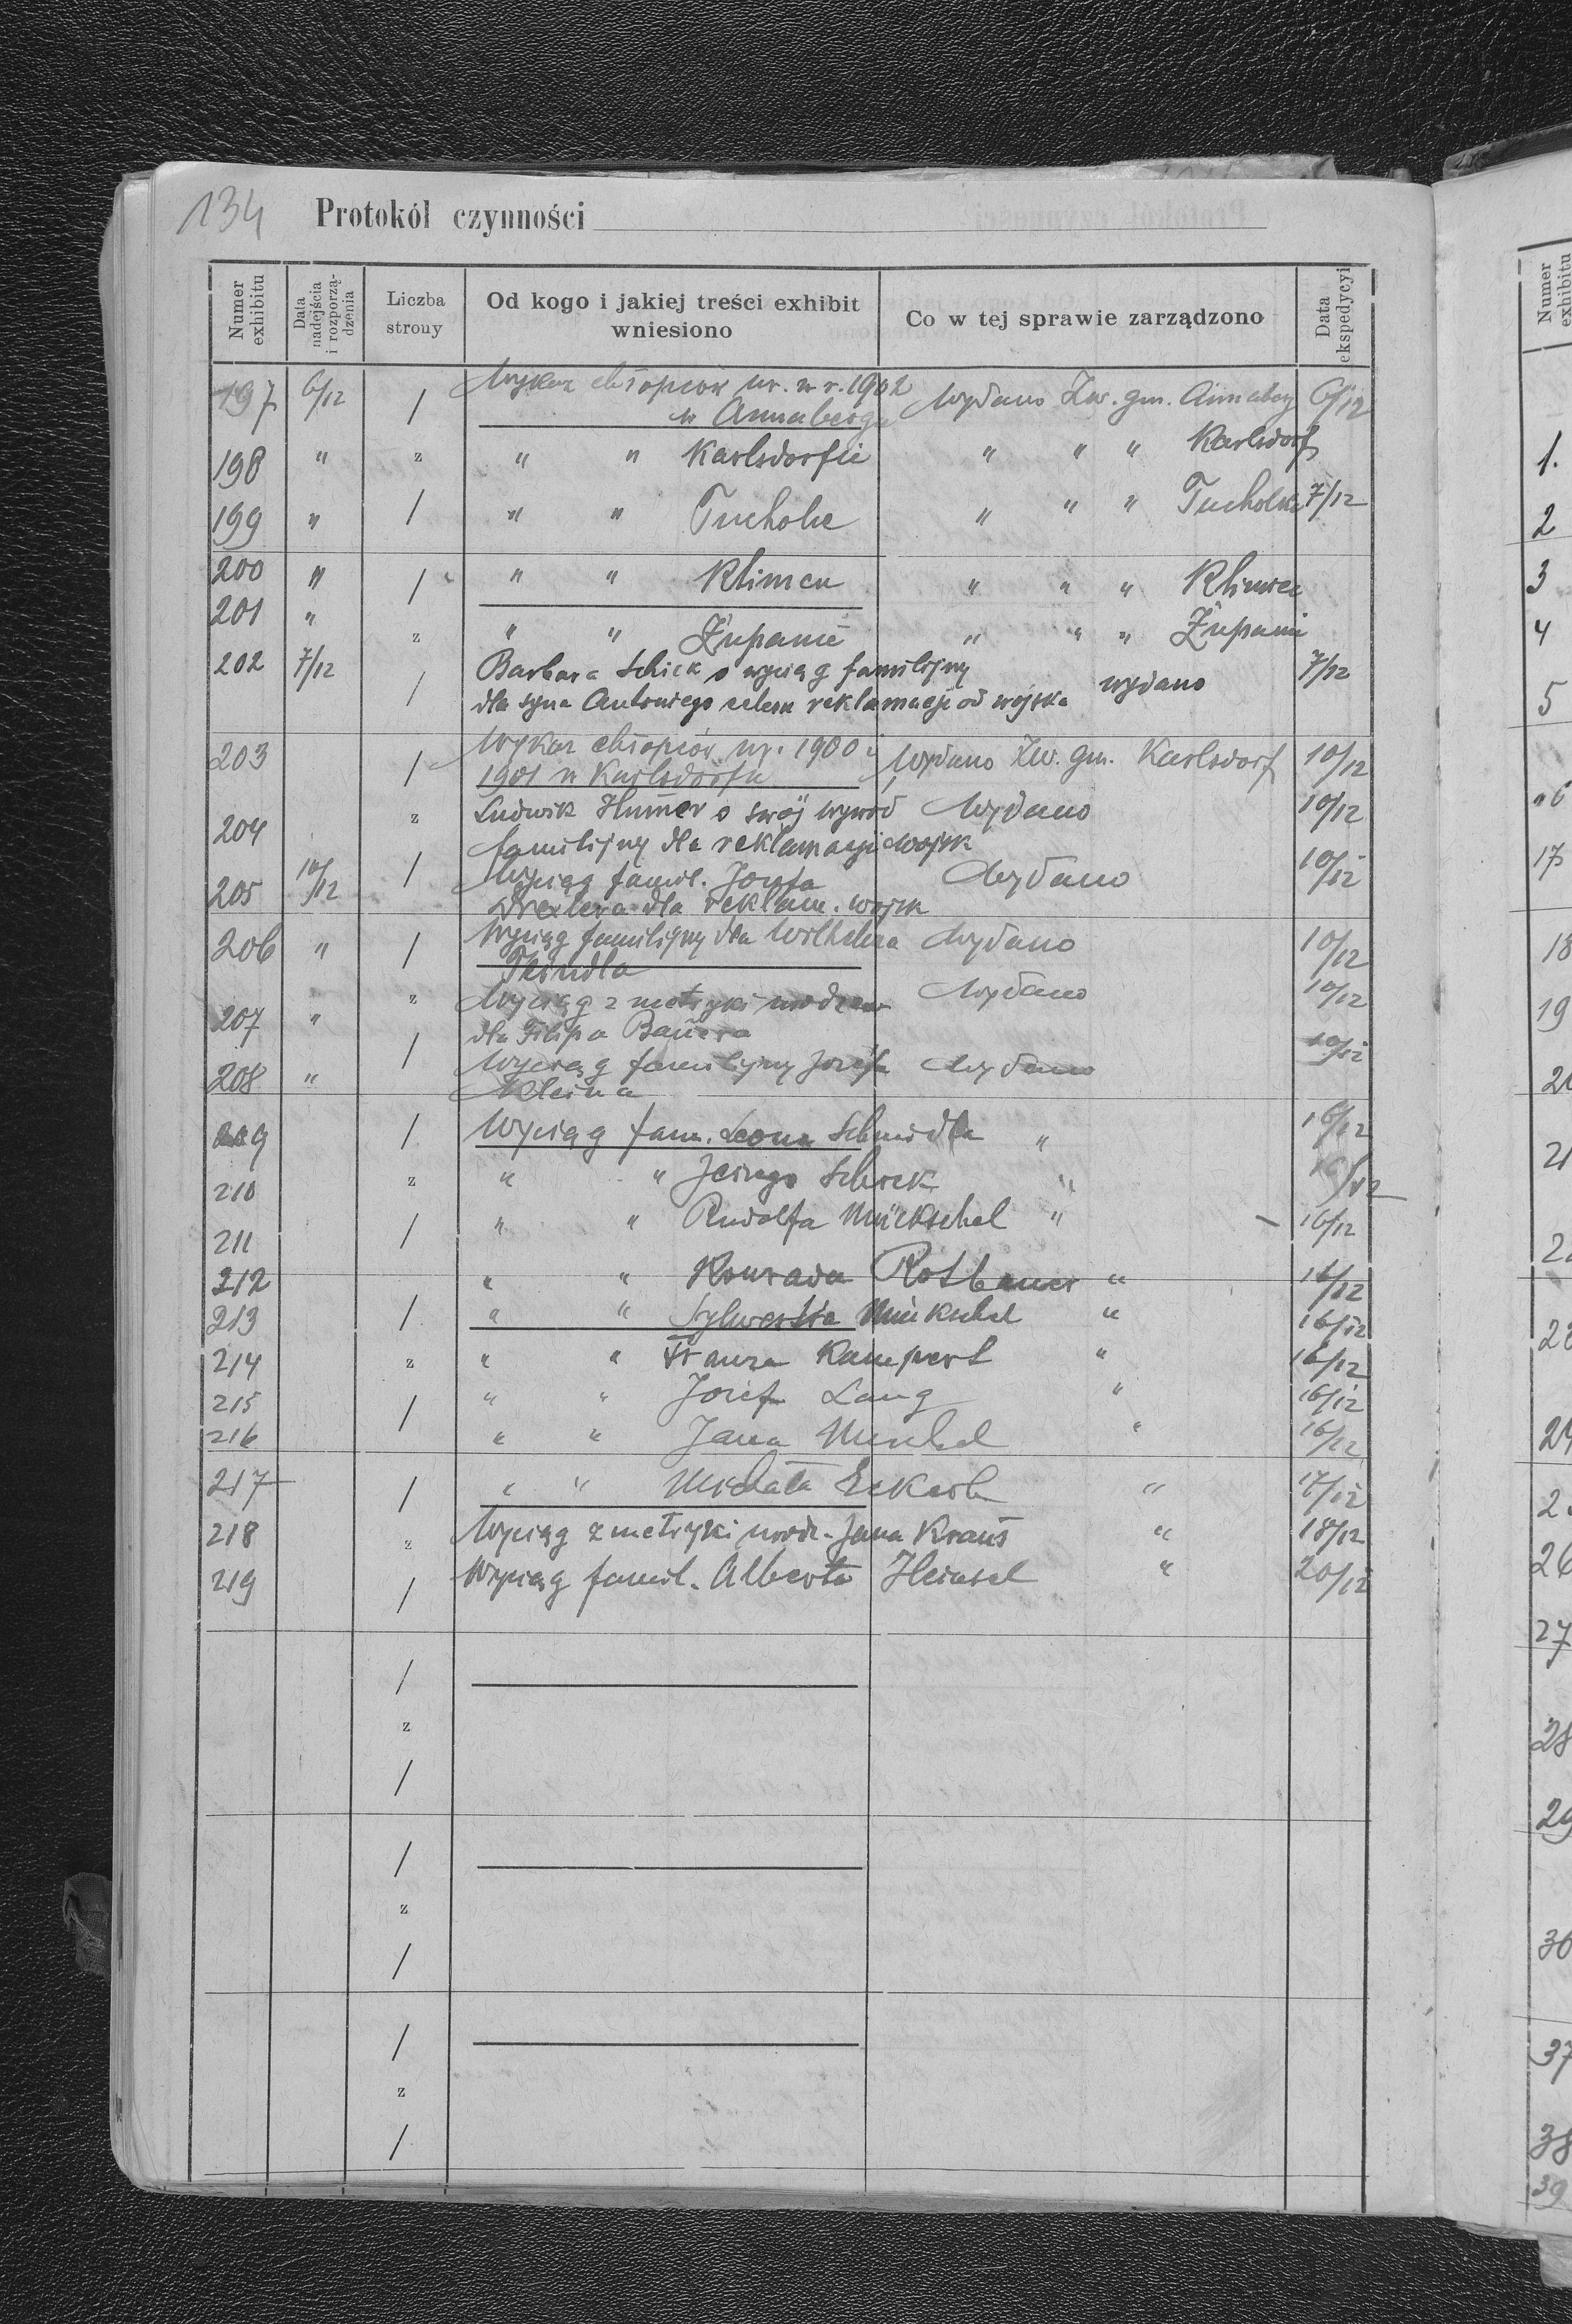 134 Protokół czynności
Numer exhibitu
Data nadejścia i rozporzą- dzenia
Liczba strony
Od kogo i jakiej treści exhibit wniesiono
Co w tej sprawie zarządzono
Data ekspedycyi
197 6/12 / Wykaz chłopców ur. w r. 1902 Wydano Zw. gm. Annaberg 6/12
w Annabergu
198 " z " " Karlsdorfie " " " Karlsdorf
199 " / " " Tucholce " " " Tucholka 7/12
200 " / " " Klimcu " " " Klimiec
201 " z " " Żupanie " " " Żupanie
202 7/12 / Barbara Schick o wyciąg familijny wydano 7/12
dla syna Antoniego celem reklamacji od wojska
203 / Wykaz chłopców ur. 1900 i Wydano Zw. gm. Karlsdorf 10/12
1901 w Karlsdorfie
204 z Ludwik Humer o swój wywód Wydano 10/12
familijny dla reklamacji wojsk
205 10/12 / Wyciąg famil. Josefa Wydano 10/12
Drexlera dla reklam. wojsk
206 " / Wyciąg familijny dla Wilhelma Wydano 10/12
207 " z Wyciąg z metryki urodzenia Wydano 10/12
dla Filipa Bauera
208 " / Wyciąg familijny Josefa Wydano 10/12
Kleina
209 / Wyciąg fam. Leona Schmidta " 16/12
210 z " " Jerzego Schick " 16/12
211 / " " Rudolfa Mückschel " 16/12
212 " " Konrada Rotbauer " 16/12
213 / " " Sylwestra Mückschel " 16/12
214 z " " Franza Rampert " 16/12
215 / " " Josefa Lang " 16/12
216 " " Jana " 16/12
217 / " " Michała " 17/12
218 z Wyciąg z metryki urodz. Jana Kraus " 18/12
219 / Wyciąg famil. Alberta Heinsel " 20/12
/
z
/
/
z
/
/
z
/
Numer exhibitu
1.
2
3
4
5
"6
17
18
19
21
26
27
28
29
37
38
39